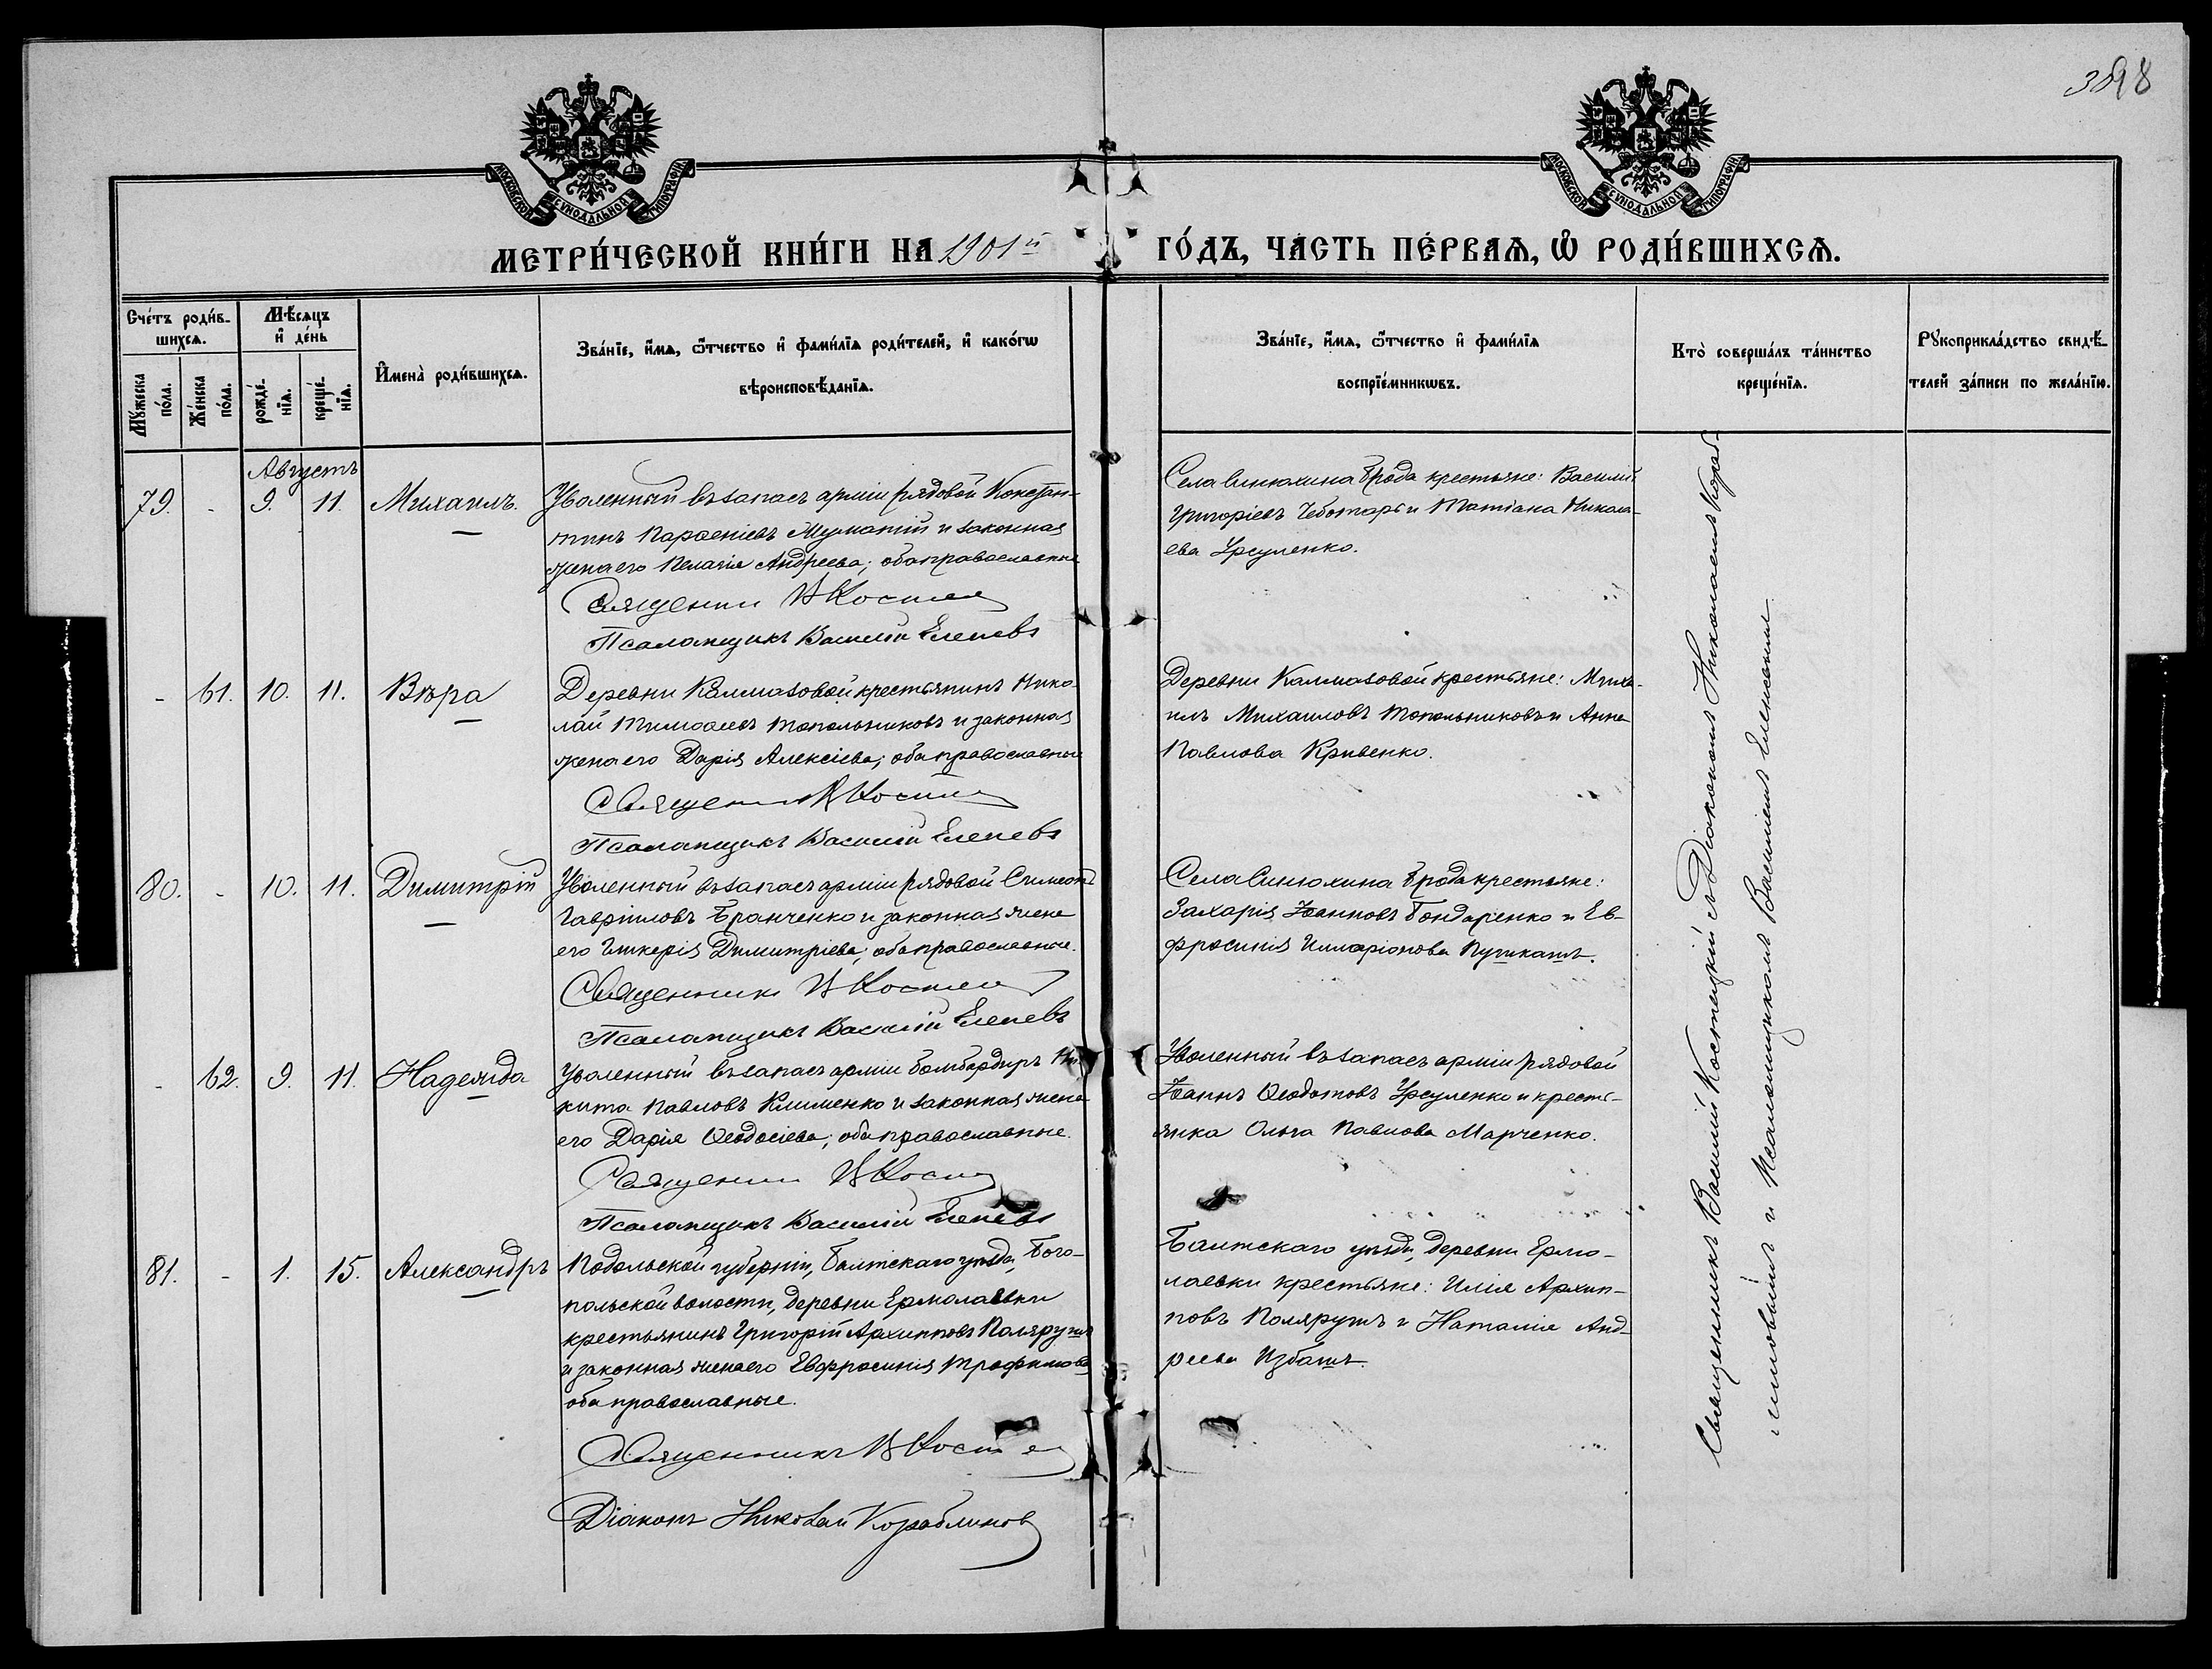 3898
МОСКОВСКОЙ СѴНОДАЛЬНОЙ ТИПОГРАФІИ
МОСКОВСКОЙ СѴНОДАЛЬНОЙ ТИПОГРАФІИ
МЕТРИ́ЧЕСКОЙ КНИ́ГИ НА 1901й ГО́ДЪ, ЧА́СТЬ ПЕ́РВАѦ, Ѡ РОДИ́ВШИХСѦ.
Сче́тъ роди́в-
шихсѧ.
Мꙋ́жеска
по́ла.
Же́нска
по́ла.
Мѣ́сѧцъ
и҆ де́нь
рожде́-
нїѧ.
креще́-
нїѧ.
И҆мена̀ роди́вшихсѧ.
Зва́нїе, и҆́мѧ, ѻ҆́тчество и҆ фами́лїѧ роди́телей, и҆ како́гѡ
вѣроисповѣ́данїѧ.
Зва́нїе, и҆́мѧ, ѻ҆́тчество и҆ фами́лїѧ
воспрїе́мникѡвъ.
Кто̀ соверша́лъ та́инство
креще́нїѧ.
Рꙋкоприкла́дство свидѣ́-
телей за́писи по жела́нїю.
Августъ
79. - 9. 11. Михаилъ.
Уволенный въ запасъ арміи рядовой Констан-
тинъ Парѳеніевъ Мунатій и законная
жена его Пелагія Андреева; оба православные
Священникъ В Кост
Псаломщикъ Василій Еленевъ
Села Синюхина Брода крестьяне: Василій
Григоріевъ Чеботарь и Татіана Никола-
ева Урсуленко.
- 61. 10. 11. Вѣра
Деревни Калмазовой крестьянинъ Нико-
лай Тимоѳеевъ Топольниковъ и законная
жена его Дарія Алексіева; оба православные
Священникъ В Кост
Псаломщикъ Василій Еленевъ
Деревни Калмазовой крестьяне: Миха-
илъ Михаиловъ Топольниковъ и Анна
Павлова Кривенко.
80. - 10. 11. Димитрій
Уволенный въ запасъ арміи рядовой Симеонъ
Гавріиловъ Бранченко и законная жена
его Гликерія Димитріева; оба православные.
Священникъ В Кост
Псаломщикъ Василій Еленевъ
Села Синюхина Брода крестьяне:
Захарія Іоанновъ Бондаренко и Ев-
фросинія Илларіонова Пушкашъ.
- 62. 9. 11. Надежда
Уволенный въ запасъ арміи бомбардиръ Ни-
кита Павловъ Клименко и законная жена
его Дарія Ѳеодосіева; оба православные.
Священникъ В Кост
Псаломщикъ Василій Еленевъ
Уволенный въ запасъ арміи рядовой
Іоаннъ Ѳеодотовъ Урсуленко и кресть-
янка Ольга Павлова Марченко.
81. - 1. 15. Александръ
Подольской губерніи, Балтскаго уѣзда, Бого-
польской волости, деревни Ермолаевки
крестьянинъ Григорій Архипповъ Поляруш
и законная жена его Евфросинія Трофимова
оба православные.
Священникъ В Кост
Діаконъ Николай Кораблинов
Балтскаго уѣзда, деревни Ермо-
лаевки крестьяне: Илія Архип-
повъ Полярушъ и Наталія Анд-
реева Избашъ.
Священникъ Василій Костецкій съ Діакономъ Николаемъ Кораб-
линовымъ и Псаломщикомъ Василіемъ Еленевымъ